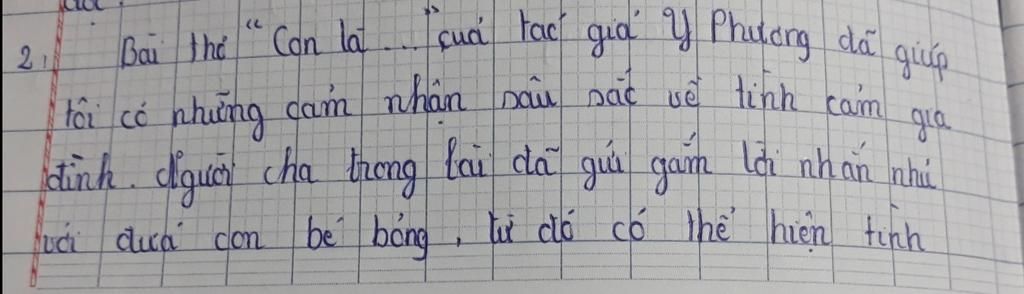 2, Bài thơ "Con là..." của tác giả Y Phương đã giúp
tôi có những cảm nhận sâu sắc về tình cảm gia
đình. Người cha trong bài đã gửi gắm lời nhắn nhủ
với đứa con bé bỏng, từ đó có thể hiện tình